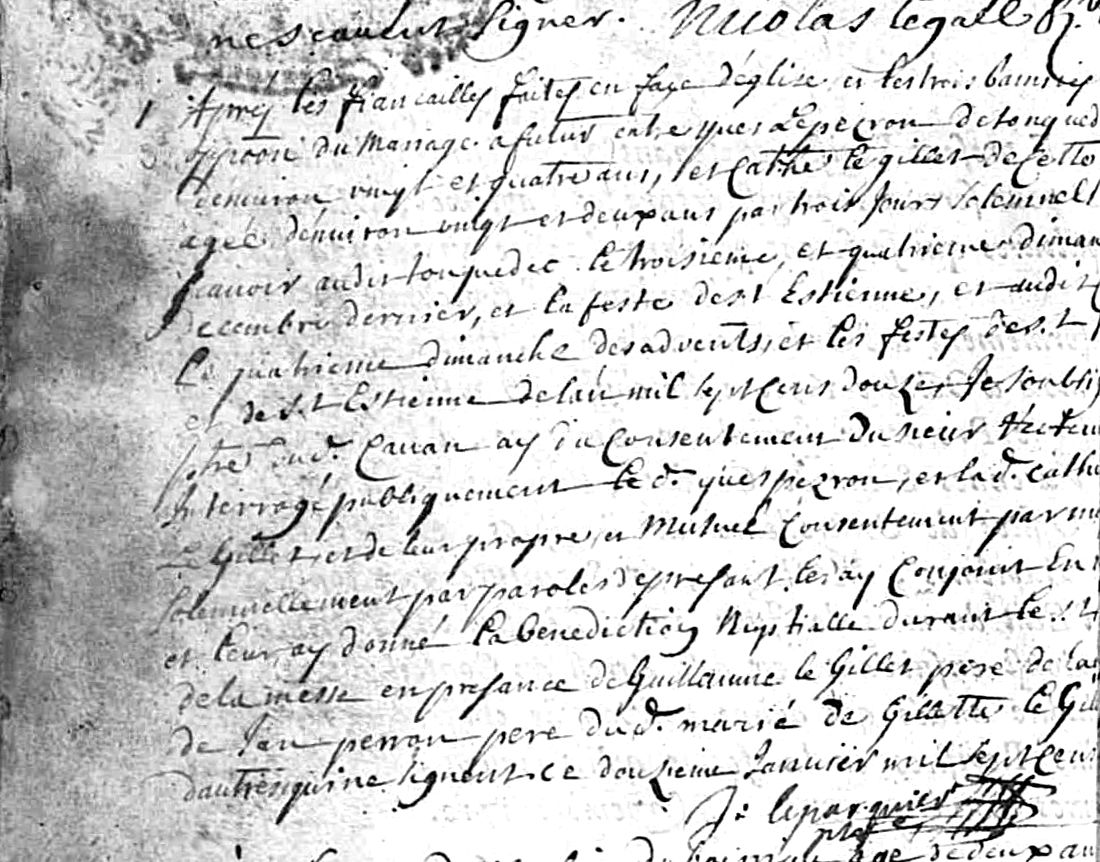 nesçauent signer. Nicolas legall
Apres les fiançailles faites en face d'église, et les trois bannies
du Mariage a futur entre yves Lepezron de tonqued
d'enuiron vingt et quatre ans, et Cathe le gillet de Cette
agée d'enuiron vingt et deux ans par trois Jours solemnels
scauoir audit tonquedec le troisieme, et quatrieme diman
decembre dernier, et la feste de st Estienne, et audit
Le quatrieme dimanche des advents, et les festes de s.t
et de s.t Estienne de l'an mil sept cens douze, Je soubsig
ptre Cauan ay du Consentement du sieur Recteu
Interrogé publiquement le d. yves pezron, et la d. Cathe
Le Gillet, et de leur propre, et Mutuel Consentement par
solemnellement par paroles de presant les ay Conjoint En
et leur ay donné la benediction Nuptialle durant le st
de la messe en presance de Guillaume le Gillet pere de la
de Jan perron pere du d. marié de Gillette le Gill
d'autres qui ne signent ce douzieme Januier mil sept cens
J: leparquier
ptre
age de deux an